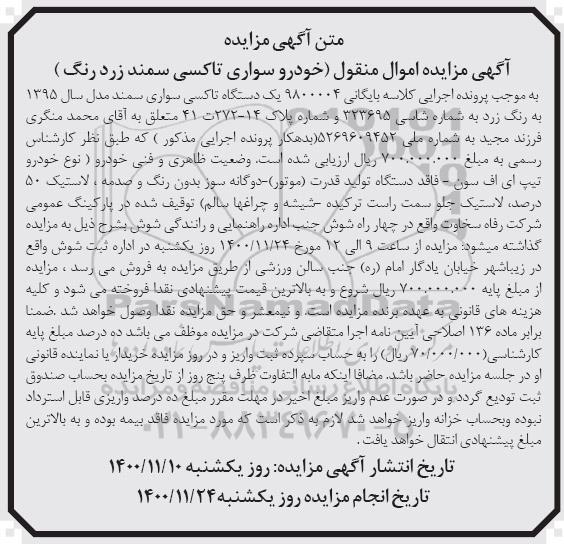 متن آگهی مزایده
آگهی مزایده اموال منقول (خودرو سواری تاکسی سمند زرد رنگ )
به موجب پرونده اجرایی کلاسه بایگانی ۹۸۰۰۰۰۴ یک دستگاه تاکسی سواری سمند مدل سال ۱۳۹۵
به رنگ زرد به شماره شاسی ۳۲۳۶۹۵ و شماره پلاک ۱۴-۲۷۲ت ۴۱ متعلق به آقای محمد منگری
فرزند مجید به شماره ملی ۵۲۶۹۶۰۹۴۵۲(بدهکار پرونده اجرایی مذکور ) که طبق نظر کارشناس
رسمی به مبلغ ۷۰۰.۰۰۰.۰۰۰ ریال ارزیابی شده است. وضعیت ظاهری و فنی خودرو ( نوع خودرو
تیپ ای اف سون - فاقد دستگاه تولید قدرت (موتور)-دوگانه سوز بدون رنگ و صدمه ، لاستیک ۵۰
درصد، لاستیک جلو سمت راست ترکیده -شیشه و چراغها سالم) توقیف شده در پارکینگ عمومی
شرکت رفاه سخاوت واقع در چهار راه شوش جنب اداره راهنمایی و رانندگی شوش بشرح ذیل به مزایده
گذاشته میشود: مزایده از ساعت ۹ الی ۱۲ مورخ ۱۴۰۰/۱۱/۲۴ روز یکشنبه در اداره ثبت شوش واقع
در زیباشهر خیابان یادگار امام (ره) جنب سالن ورزشی از طریق مزایده به فروش می رسد ، مزایده
از مبلغ پایه ۷۰۰.۰۰۰.۰۰۰ ریال شروع و به بالاترین قیمت پیشنهادی نقدا فروخته می شود و کلیه
هزینه های قانونی به عهده برنده مزایده است. و نیمعشر و حق مزایده نقدا وصول خواهد شد .ضمنا
برابر ماده ۱۳۶ اصلاحی آیین نامه اجرا متقاضی شرکت در مزایده موظف می باشد ده درصد مبلغ پایه
کارشناسی(۷۰/۰۰۰/۰۰۰ ریال) را به حساب سپرده ثبت واریز و در روز مزایده خریدار یا نماینده قانونی
او در جلسه مزایده حاضر باشد. مضافا اینکه مابه التفاوت ظرف پنج روز از تاریخ مزایده بحساب صندوق
ثبت تودیع گردد و در صورت عدم واریز مبلغ اخیر در مهلت مقرر مبلغ ده درصد واریزی قابل استرداد
نبوده وبحساب خزانه واریز خواهد شد لازم به ذکر است که مورد مزایده فاقد بیمه بوده و به بالاترین
مبلغ پیشنهادی انتقال خواهد یافت .
تاریخ انتشار آگهی مزایده: روز یکشنبه ۱۴۰۰/۱۱/۱۰
تاریخ انجام مزایده روز یکشنبه۱۴۰۰/۱۱/۲۴
ParsNamadData
پایگاه اطلاع رسانی مناقصه و مزایده
۰۲۱-۸۸۳۴۹۶۷۰-۵